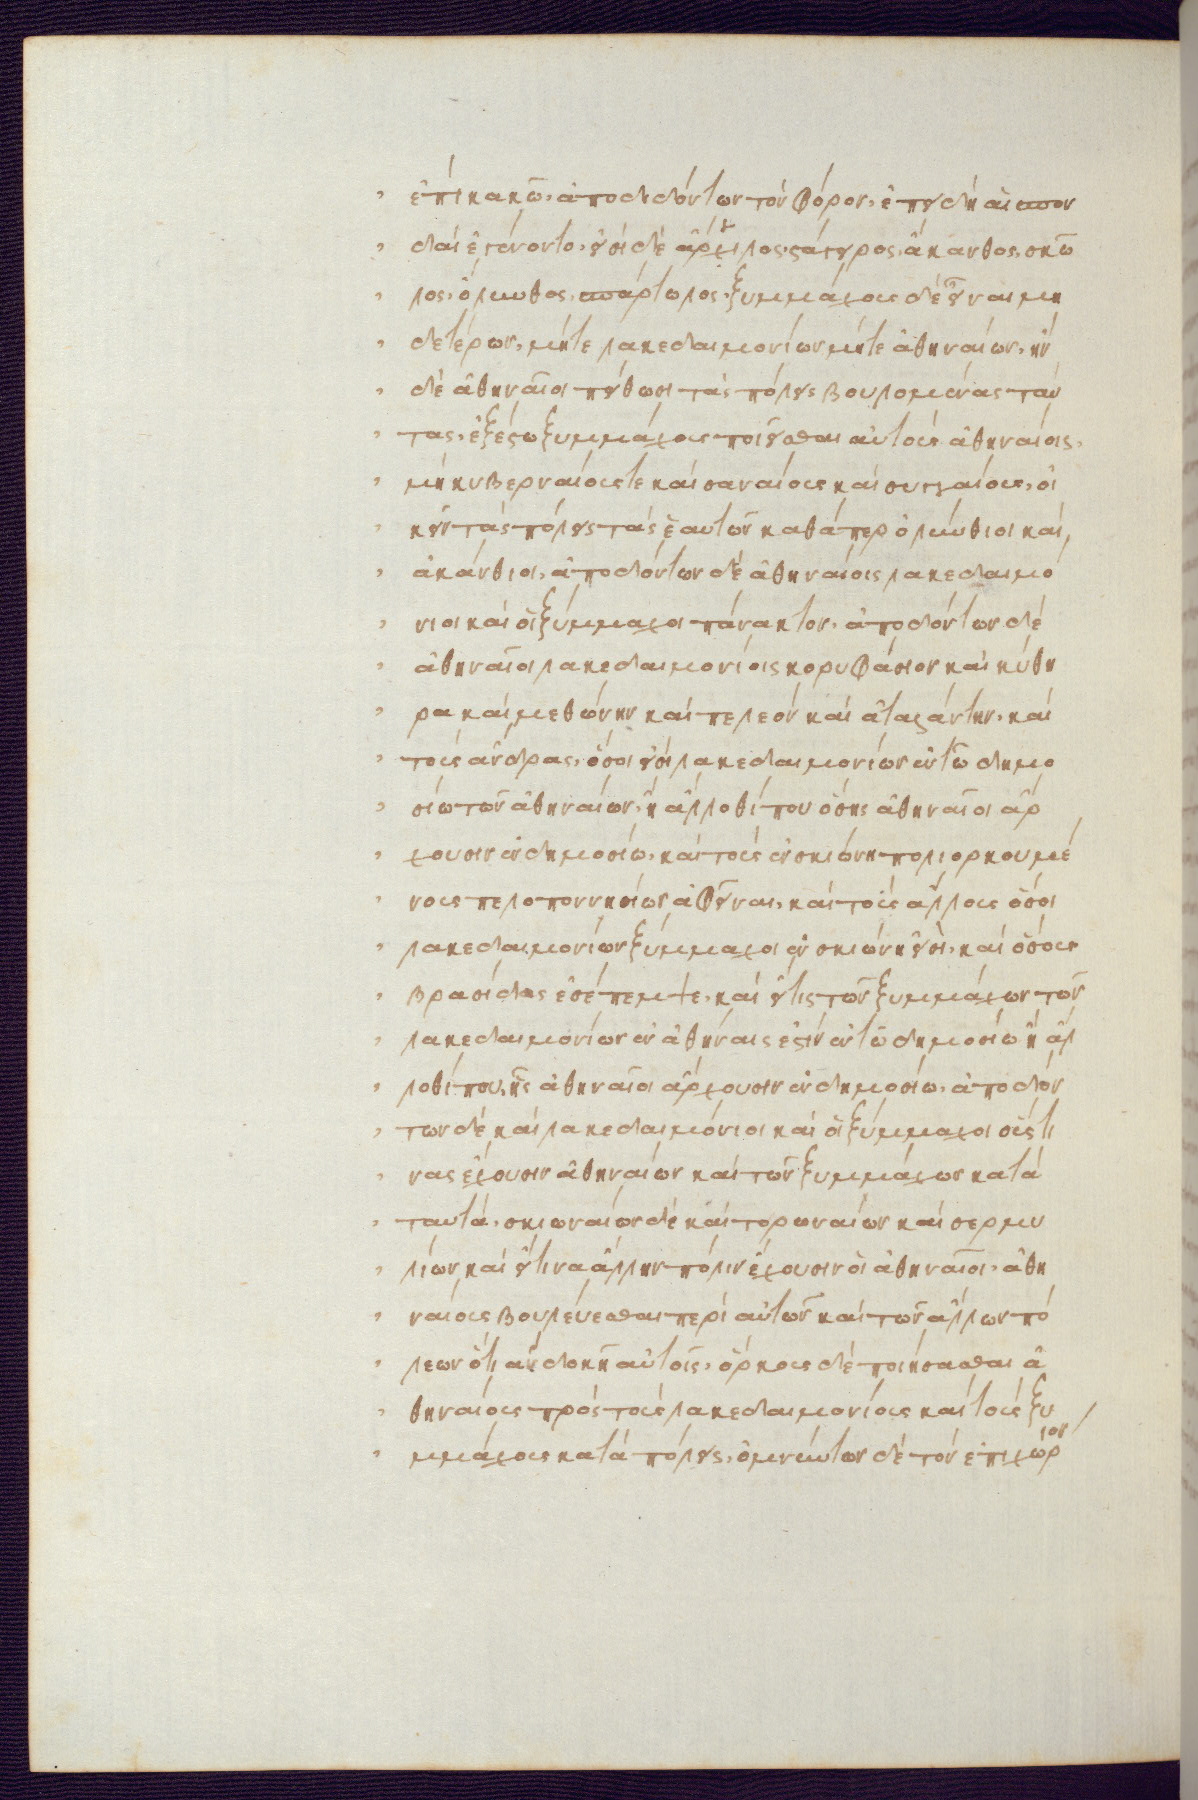 ἐπὶ κακῶ, ἀποδιδόντων τὸν φόρον, ἐπειδὴ αἱ σπον
δαὶ ἐγένοντο, εἰσὶ δὲ ἄργιλος, στάγυρος, ἄκανθος, σκῶ
λος, ὄλυνθος, σπάρτωλος, ξυμμάχους δὲ εἶναι μη
δετέρων, μήτε λακεδαιμονίων μήτε ἀθηναίων, ἢν
δὲ ἀθηναῖοι πείθωσι τὰς πόλεις βουλομένας ταύ
τας, ἐξέστω ξυμμάχους ποιεῖσθαι αὐτοὺς ἀθηναίοις,
μηκυβερναίους τε καὶ σαναίους καὶ συγγαίους, οἰ
κεῖν τὰς πόλεις τὰς ἑαυτῶν καθάπερ ὀλύνθιοι καὶ
ἀκάνθιοι, ἀποδόντων δὲ ἀθηναίοις λακεδαιμό
νιοι καὶ οἱ ξύμμαχοι πάνακτον, ἀποδόντων δὲ
ἀθηναῖοι λακεδαιμονίοις κορυφάσιον καὶ κύθη
ρα καὶ μεθώνην καὶ πελεὸν καὶ ἀταλάντην, καὶ
τοὺς ἄνδρας, ὅσοι εἰσὶ λακεδαιμονίων ἐν τῶ δημο
σίω τῶν ἀθηναίων, ἢ ἄλλοθί που ὅσης ἀθηναῖοι ἄρ
χουσιν ἐν δημοσίω, καὶ τοὺς ἐν σκιώνη πολιορκουμέ
νους πελοποννησίων ἀφεῖναι, καὶ τοὺς ἄλλους ὅσοι
λακεδαιμονίων ξύμμαχοι ἐν σκιώνη εἰσὶ, καὶ ὅσους
βρασίδας ἐσέπεμψε, καὶ εἴ τις τῶν ξυμμάχων τῶν
λακεδαιμονίων ἐν ἀθήναις ἐστὶν ἐν τῶ δημοσίω ἢ ἄλ
λοθί που, ἧς ἀθηναῖοι ἄρχουσιν ἐν δημοσίω, ἀποδόν
των δὲ καὶ λακεδαιμόνιοι καὶ οἱ ξύμμαχοι οὕστι
νας ἔχουσιν ἀθηναίων καὶ τῶν ξυμμάχων κατὰ
ταυτὰ, σκιωναίων δὲ καὶ τορωναίων καὶ σερμυ
λίων καὶ εἴ τινα ἄλλην πόλιν ἔχουσιν οἱ ἀθηναῖοι, ἀθη
ναίους βουλεύεσθαι περὶ αὐτῶν καὶ τῶν ἄλλων πό
λεων ὅ,τι ἂν δοκῆ αὐτοῖς, ὅρκους δὲ ποιήσασθαι ἀ
θηναίους πρὸς τοὺς λακεδαιμονίους καὶ τοὺς ξυ
μμάχους κατὰ πόλεις, ὀμνύντων δὲ τὸν ἐπιχώριον